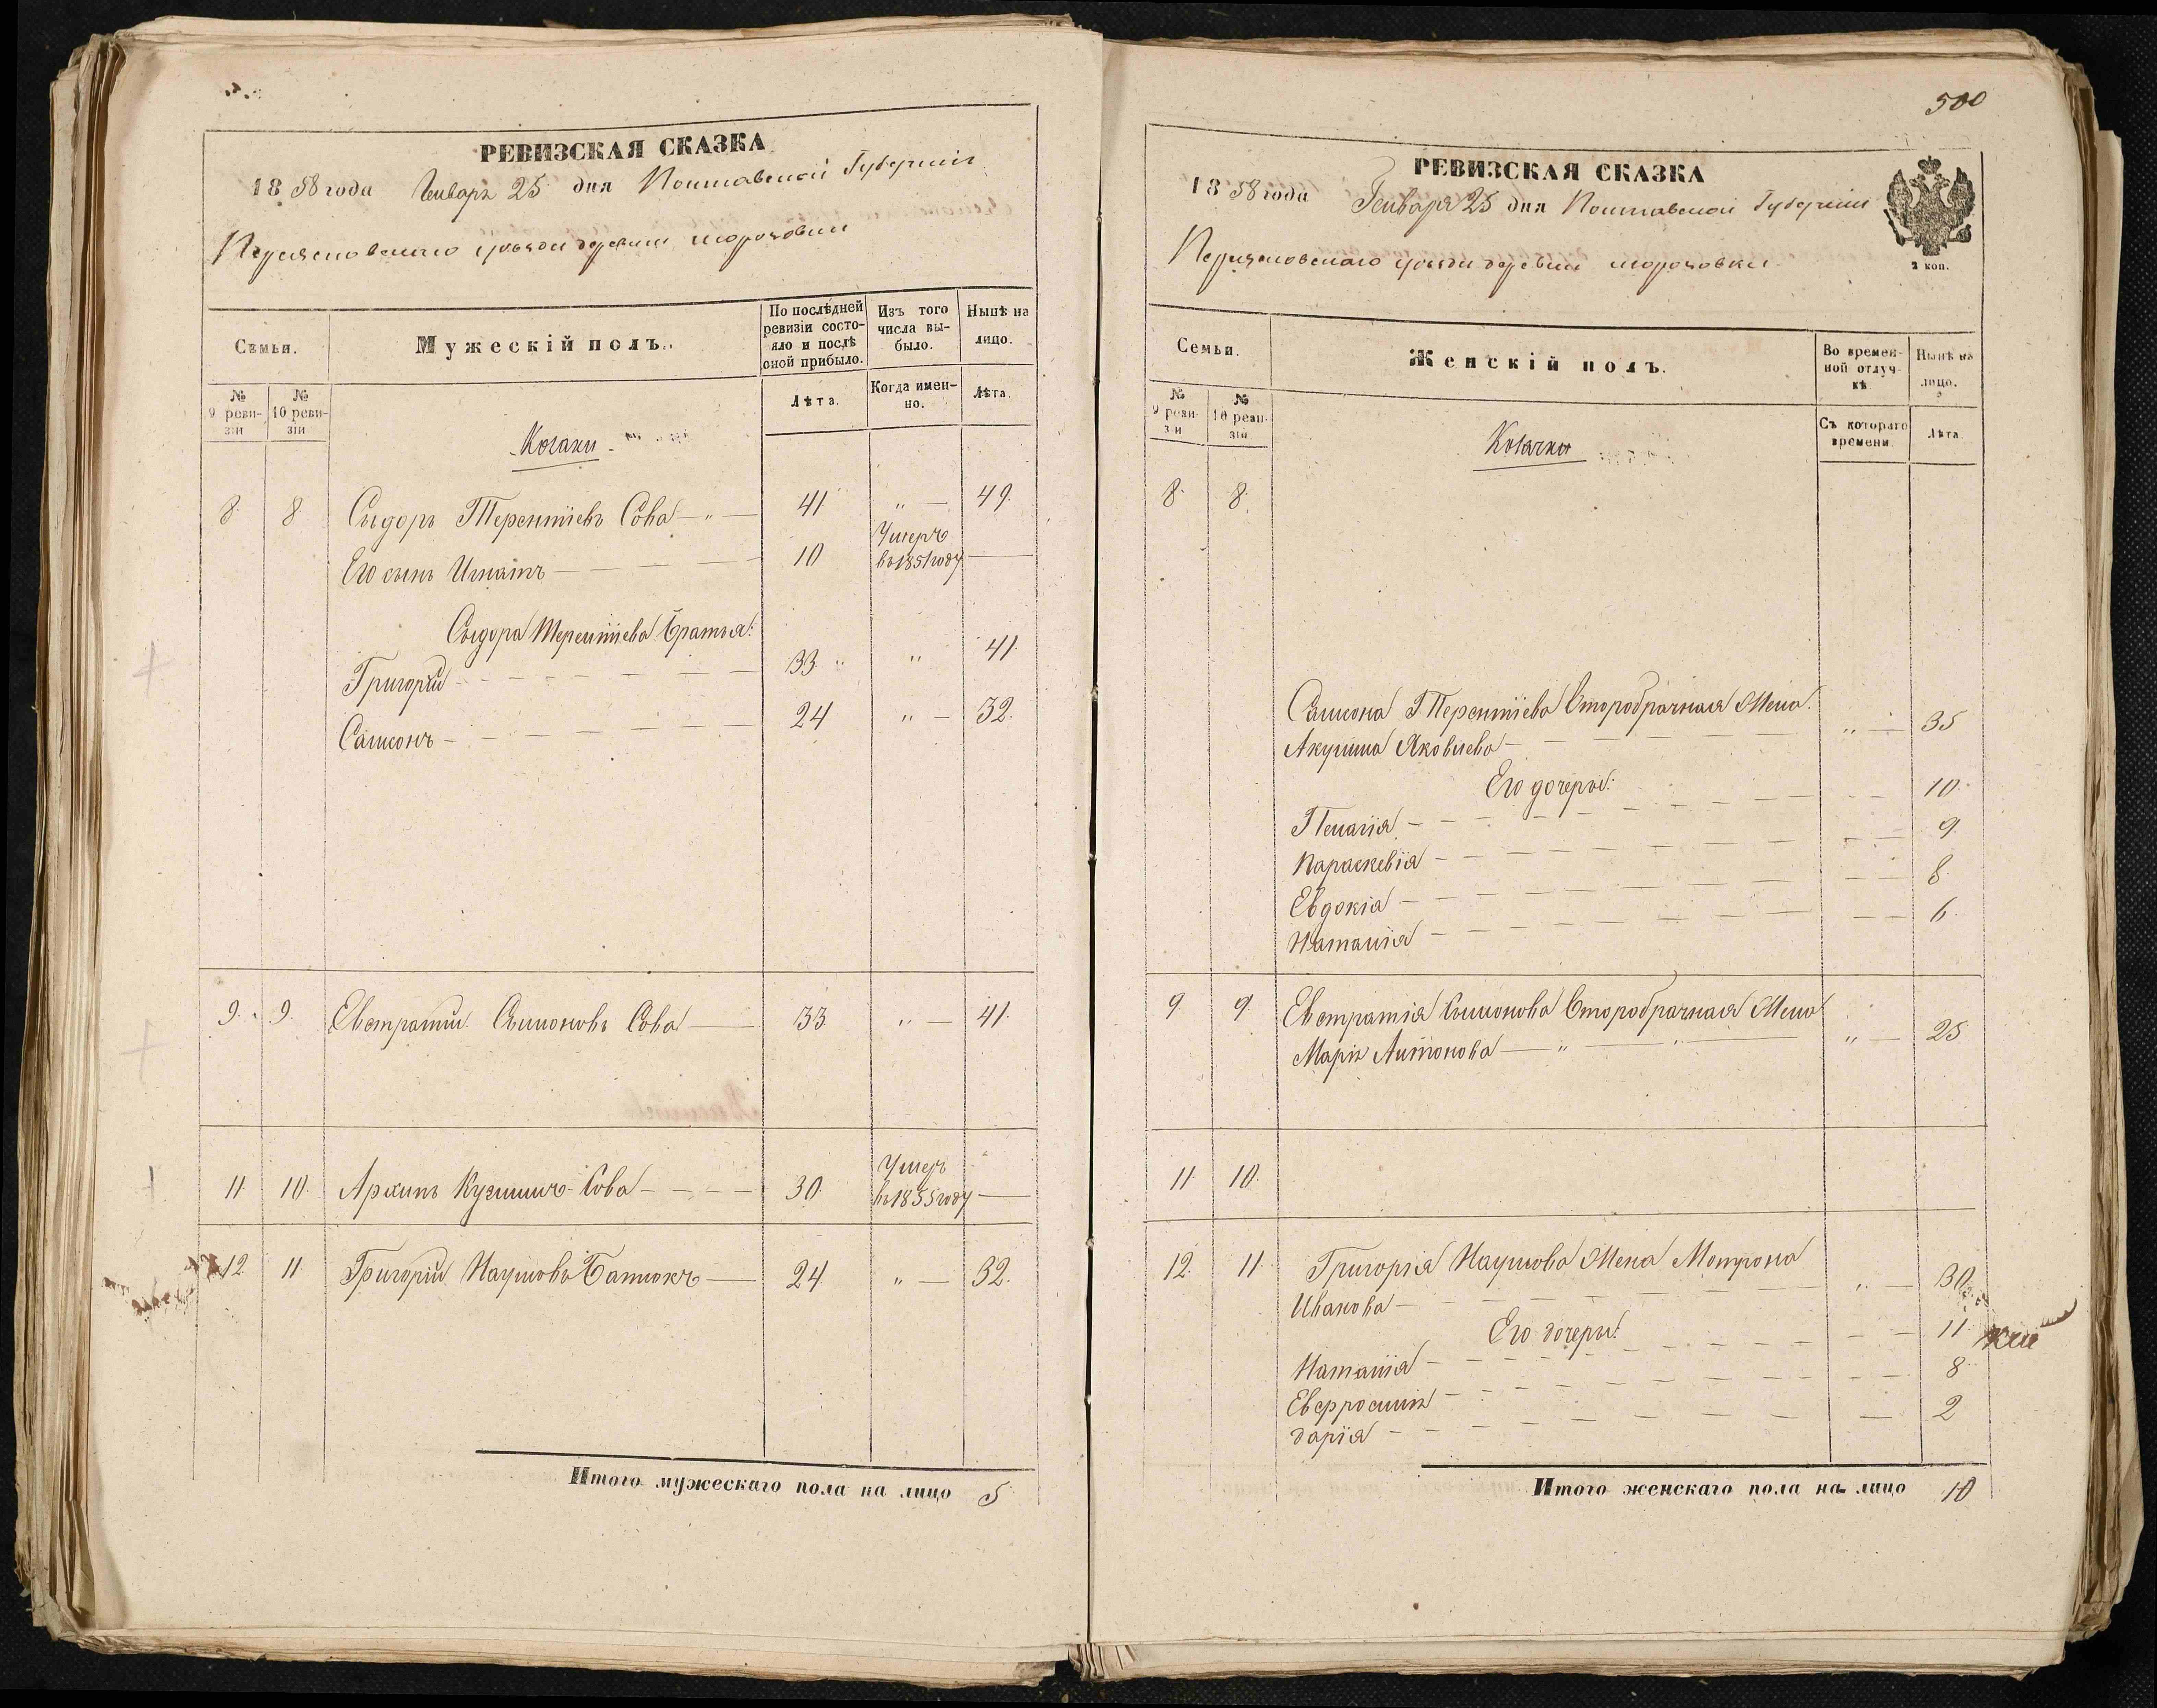 РЕВИЗСКАЯ СКАЗКА
18 58 года Генваря 25 дня Полтавской Губерніи
деревни
Семьи.
Мужескій полъ.
По послѣдней ревизіи состояло и послѣ оной прибыло.
Изъ того числа выбыло.
Нынѣ на лицо.
№ 9 ревизіи
№ 10 ревизіи
Лѣта.
Когда именно.
Лѣта.
Козаки
8. 8 Сидоръ Терентіевъ Сова 41 „ 49.
Его сынъ Игнатъ 10 Умеръ въ 1851 году
Сидора Терентіева братья:
Григорій 33 „ 41.
Самсонъ 24 „ 32.
9. 9. Евстратій Симоновъ Сова 33. „ 41.
11. 10. Архипъ Кузьмичъ Сова 30. Умеръ въ 1855 году
12. 11 Григорій Наумовъ Батюкъ 24 „ 32.
Итого мужескаго пола на лицо 5
500
РЕВИЗСКАЯ СКАЗКА
18 58 года Генваря 25 дня Полтавской Губерніи
деревни
2 коп.
Семьи.
Женскій полъ.
Во временной отлучкѣ
Нынѣ на лицо.
№ 9 ревизіи
№ 10 ревизіи
Съ котораго времени
Лѣта.
Козачки
8. 8.
Самсона Терентіева второбрачная жена:
Акулина Яковлева „ 35
Его дочеры:
Пелагія 10.
Параскевія 9
Евдокія 8.
Наталія 6.
9. 9. Евстратія Симонова второбрачная жена
Марія Антонова „ 25
11. 10.
12. 11. Григорія Наумова жена Мотрона
Иванова „ 30
Его дочеры:
Наталія 11.
Евфросинія 8
Дарія 2
Итого женскаго пола на лицо 10